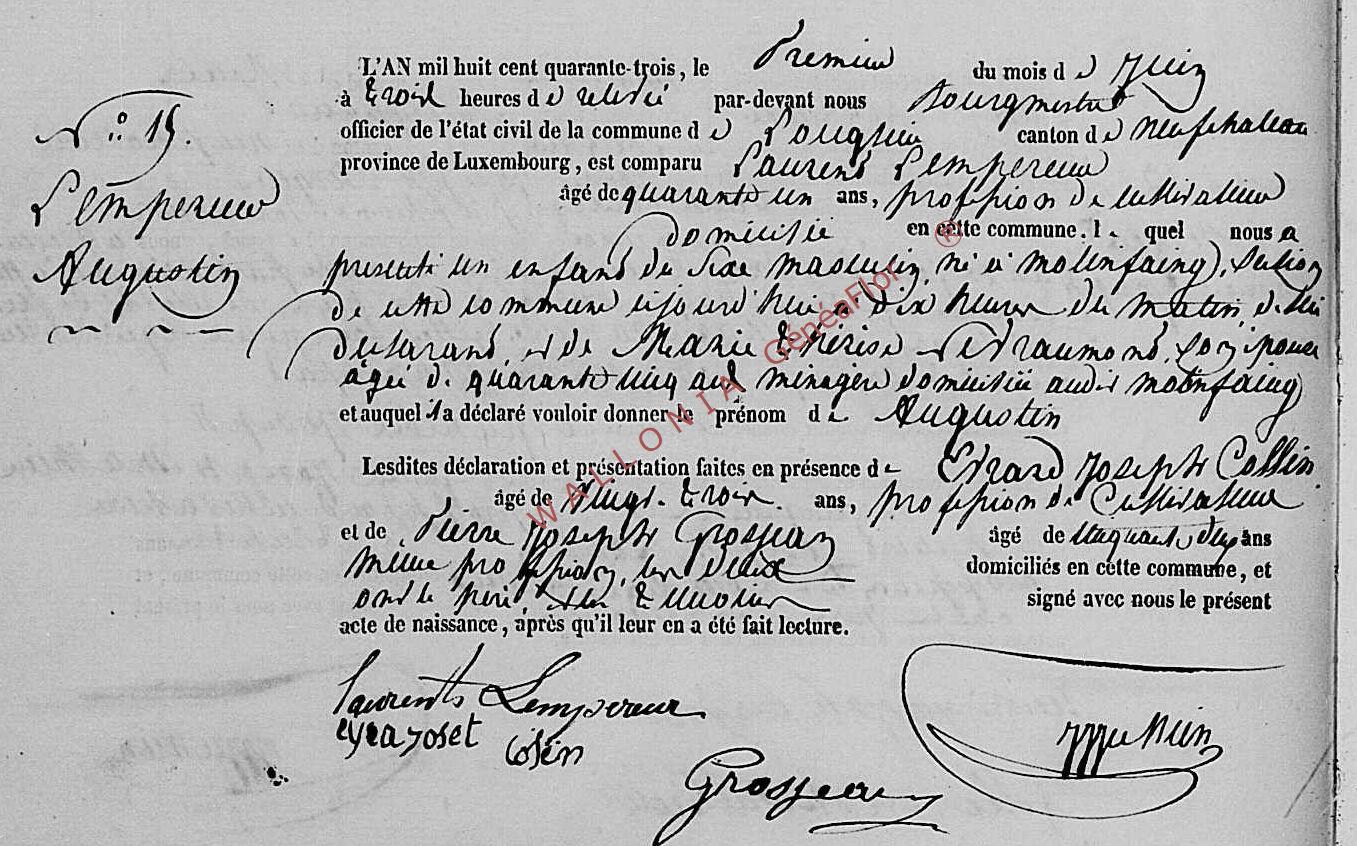 N.º 15.
Lempereur
Augustin
L'AN mil huit cent quarante-trois, le Premier du mois de Juin
à trois heures de relevée par-devant nous Bourgmestre
officier de l'état civil de la commune de Longlier canton de Neufchateau
province de Luxembourg, est comparu Laurent Lempereur
âgé de quarante un ans, profession de cultivateur
domicilié en cette commune. le quel nous a
presenté un enfant du sexe masculin, né à molinfaing, section
de cette commune cejourd'hui à dix heures du matin, de lui
declarant, et de Marie Thérèse son épouse
agée de quarante cinq ans ménagère domiciliée audit molinfaing
et auquel il a déclaré vouloir donner le prénom de Augustin
Lesdites déclaration et présentation faites en présence de Evrard Joseph Collin
âgé de vingt-trois ans, profession de Cultivateur
et de Pierre Joseph Grosjean âgé de cinquante deux ans
même profession, les deux domiciliés en cette commune, et
ont le père, et les témoins signé avec nous le présent
acte de naissance, après qu'il leur en a été fait lecture.
laurents Lempereur
evra joset Colin
Grosjean
WALLONIA GénéaFlor ®